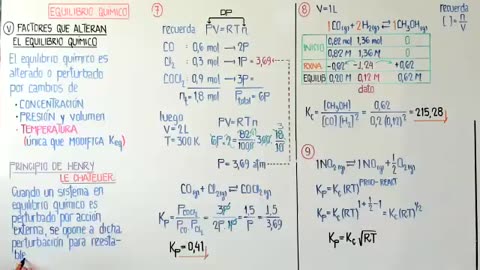 EQUILIBRIO QUÍMICO
Ⓥ FACTORES QUE ALTERAN
EL EQUILIBRIO QUÍMICO
El equilibrio químico es
alterado o perturbado
por cambios de
• CONCENTRACIÓN
• PRESIÓN y volumen
• TEMPERATURA
(única que MODIFICA Keq)
PRINCIPIO DE HENRY
LE CHATELIER.
Cuando un sistema en
equilibrio químico es
perturbado por acción
externa, se opone a dicha
perturbación para reesta-
ble
⑦
DP
recuerda PV=RTn
CO : 0,6 mol → 2P
Cl2 : 0,3 mol → 1P = 3,69
COCl2 : 0,9 mol → 3P =
nt = 1,8 mol Ptotal = 6P
luego PV=RTn
V=2L
T=300K
P = 3,69 atm
CO(g) + Cl2(g) ⇌ COCl2(g)
Kp = PCOCl2 / PCO · PCl2 = 3P / 2P·1P = 1,5 / P = 1,5 / 3,69
Kp = 0,41
⑧ V=1L
recuerda
[ ] = n/V
1CO(g) + 2H2(g) ⇌ 1CH3OH(g)
INICIO 0,82 mol 1,36 mol 0
0,82 M 1,36 M 0
RXNA -0,62 -1,24 +0,62
EQUILIB 0,20 M 0,12 M 0,62 M
dato
Kc = [CH3OH] / [CO][H2]² = 0,62 / 0,2(0,12)² = 215,28
⑨
1NO2(g) ⇌ 1NO(g) + 1/2 O2(g)
Kp = Kc (RT)^PROD-REACT
Kp = Kc (RT)^1+1/2-1 = Kc (RT)^1/2
Kp = Kc √RT